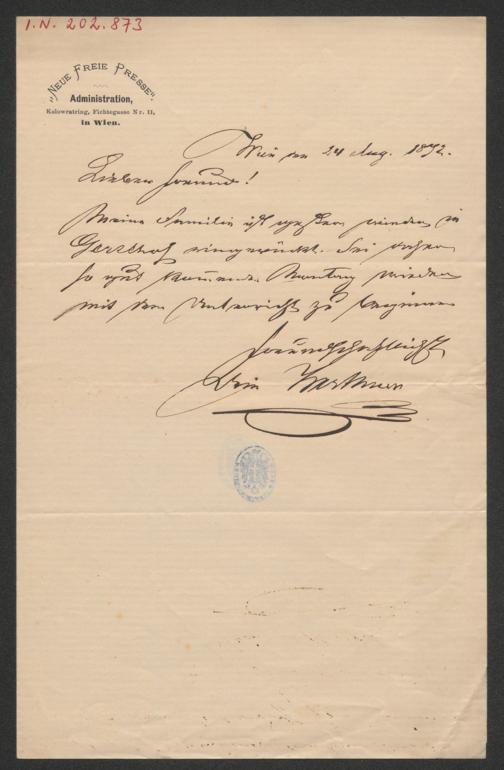 I.N. 202.873
"NEUE FREIE PRESSE".
Administration,
Kolowratring, Fichtegasse Nr. 11,
in Wien.
Wien den 24 Aug. 1872.
Lieber Freund!
Meine Familie ist gestern wieder in
Gersthof eingerückt. Sei daher
so gut kommenden Montag wieder
mit dem Unterricht zu beginnen
freundschaftlichst
Dein